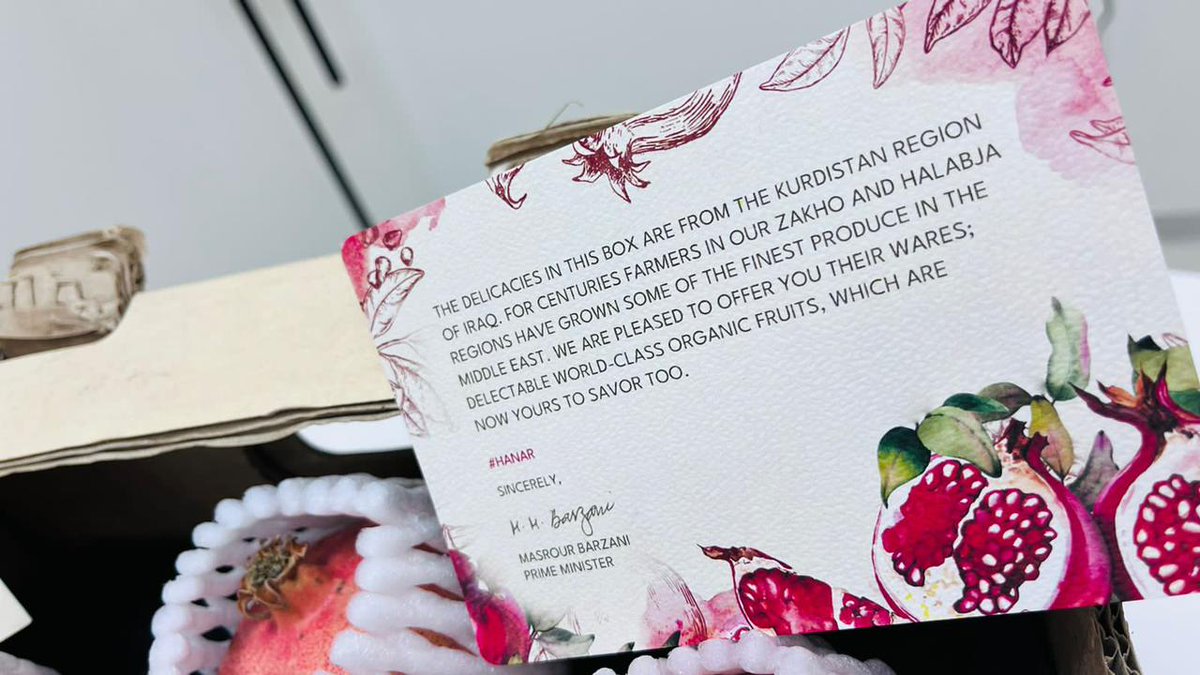 THE DELICACIES IN THIS BOX ARE FROM THE KURDISTAN REGION
OF IRAQ. FOR CENTURIES FARMERS IN OUR ZAKHO AND HALABJA
REGIONS HAVE GROWN SOME OF THE FINEST PRODUCE IN THE
MIDDLE EAST. WE ARE PLEASED TO OFFER YOU THEIR WARES;
DELECTABLE WORLD-CLASS ORGANIC FRUITS, WHICH ARE
NOW YOURS TO SAVOR TOO.
#HANAR
SINCERELY,
M. M. Barzani
MASROUR BARZANI
PRIME MINISTER